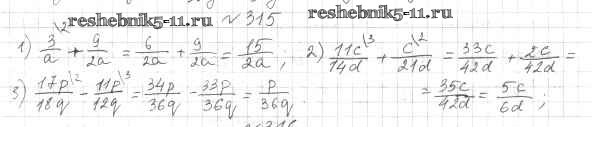 reshebnik5-11.ru № 315 reshebnik5-11.ru
1) 3/a \2 + 9/2a = 6/2a + 9/2a = 15/2a ; 2) 11c/14d \3 + c/21d \2 = 33c/42d + 2c/42d =
= 35c/42d = 5c/6d ;
3) 17p/18q \2 - 11p/12q \3 = 34p/36q - 33p/36q = p/36q